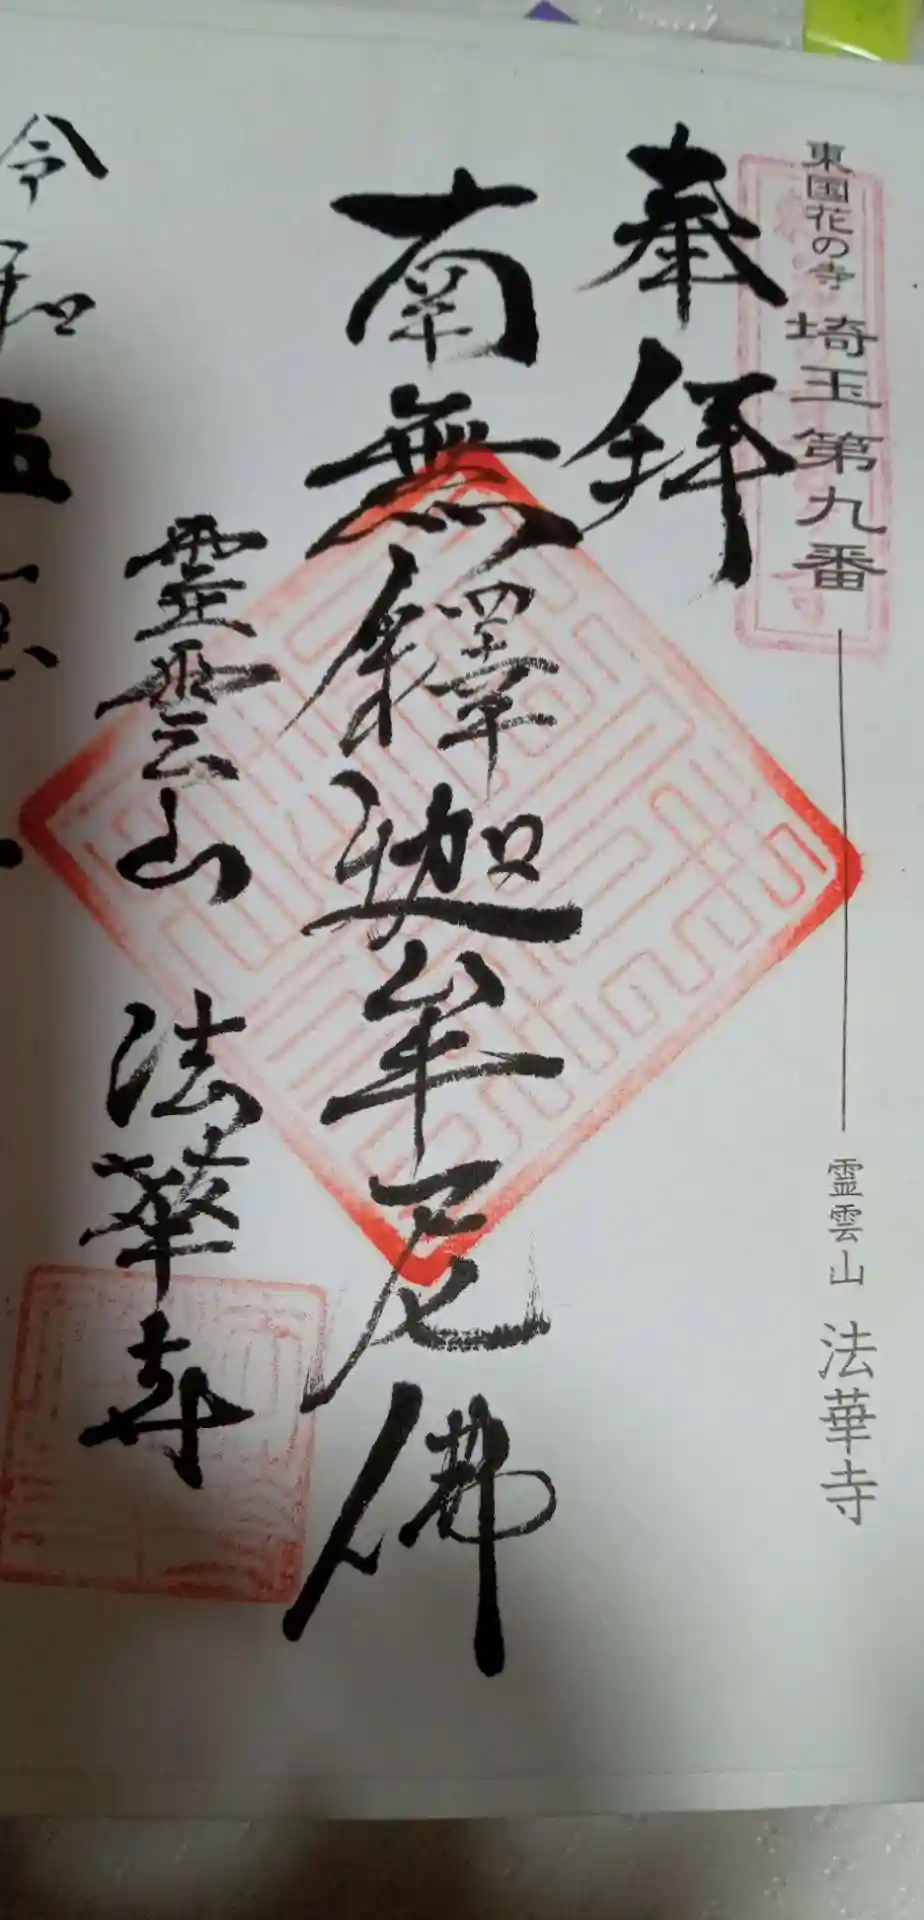 東国花の寺 埼玉第九番 霊雲山 法華寺
奉拝
南無釋迦牟尼佛
霊雲山 法華寺
令和五